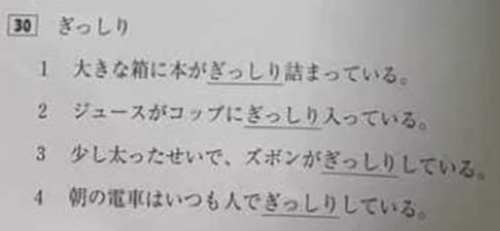 30 ぎっしり
1 大きな箱に本がぎっしり詰まっている。
2 ジュースがコップにぎっしり入っている。
3 少し太ったせいで、ズボンがぎっしりしている。
4 朝の電車はいつも人でぎっしりしている。